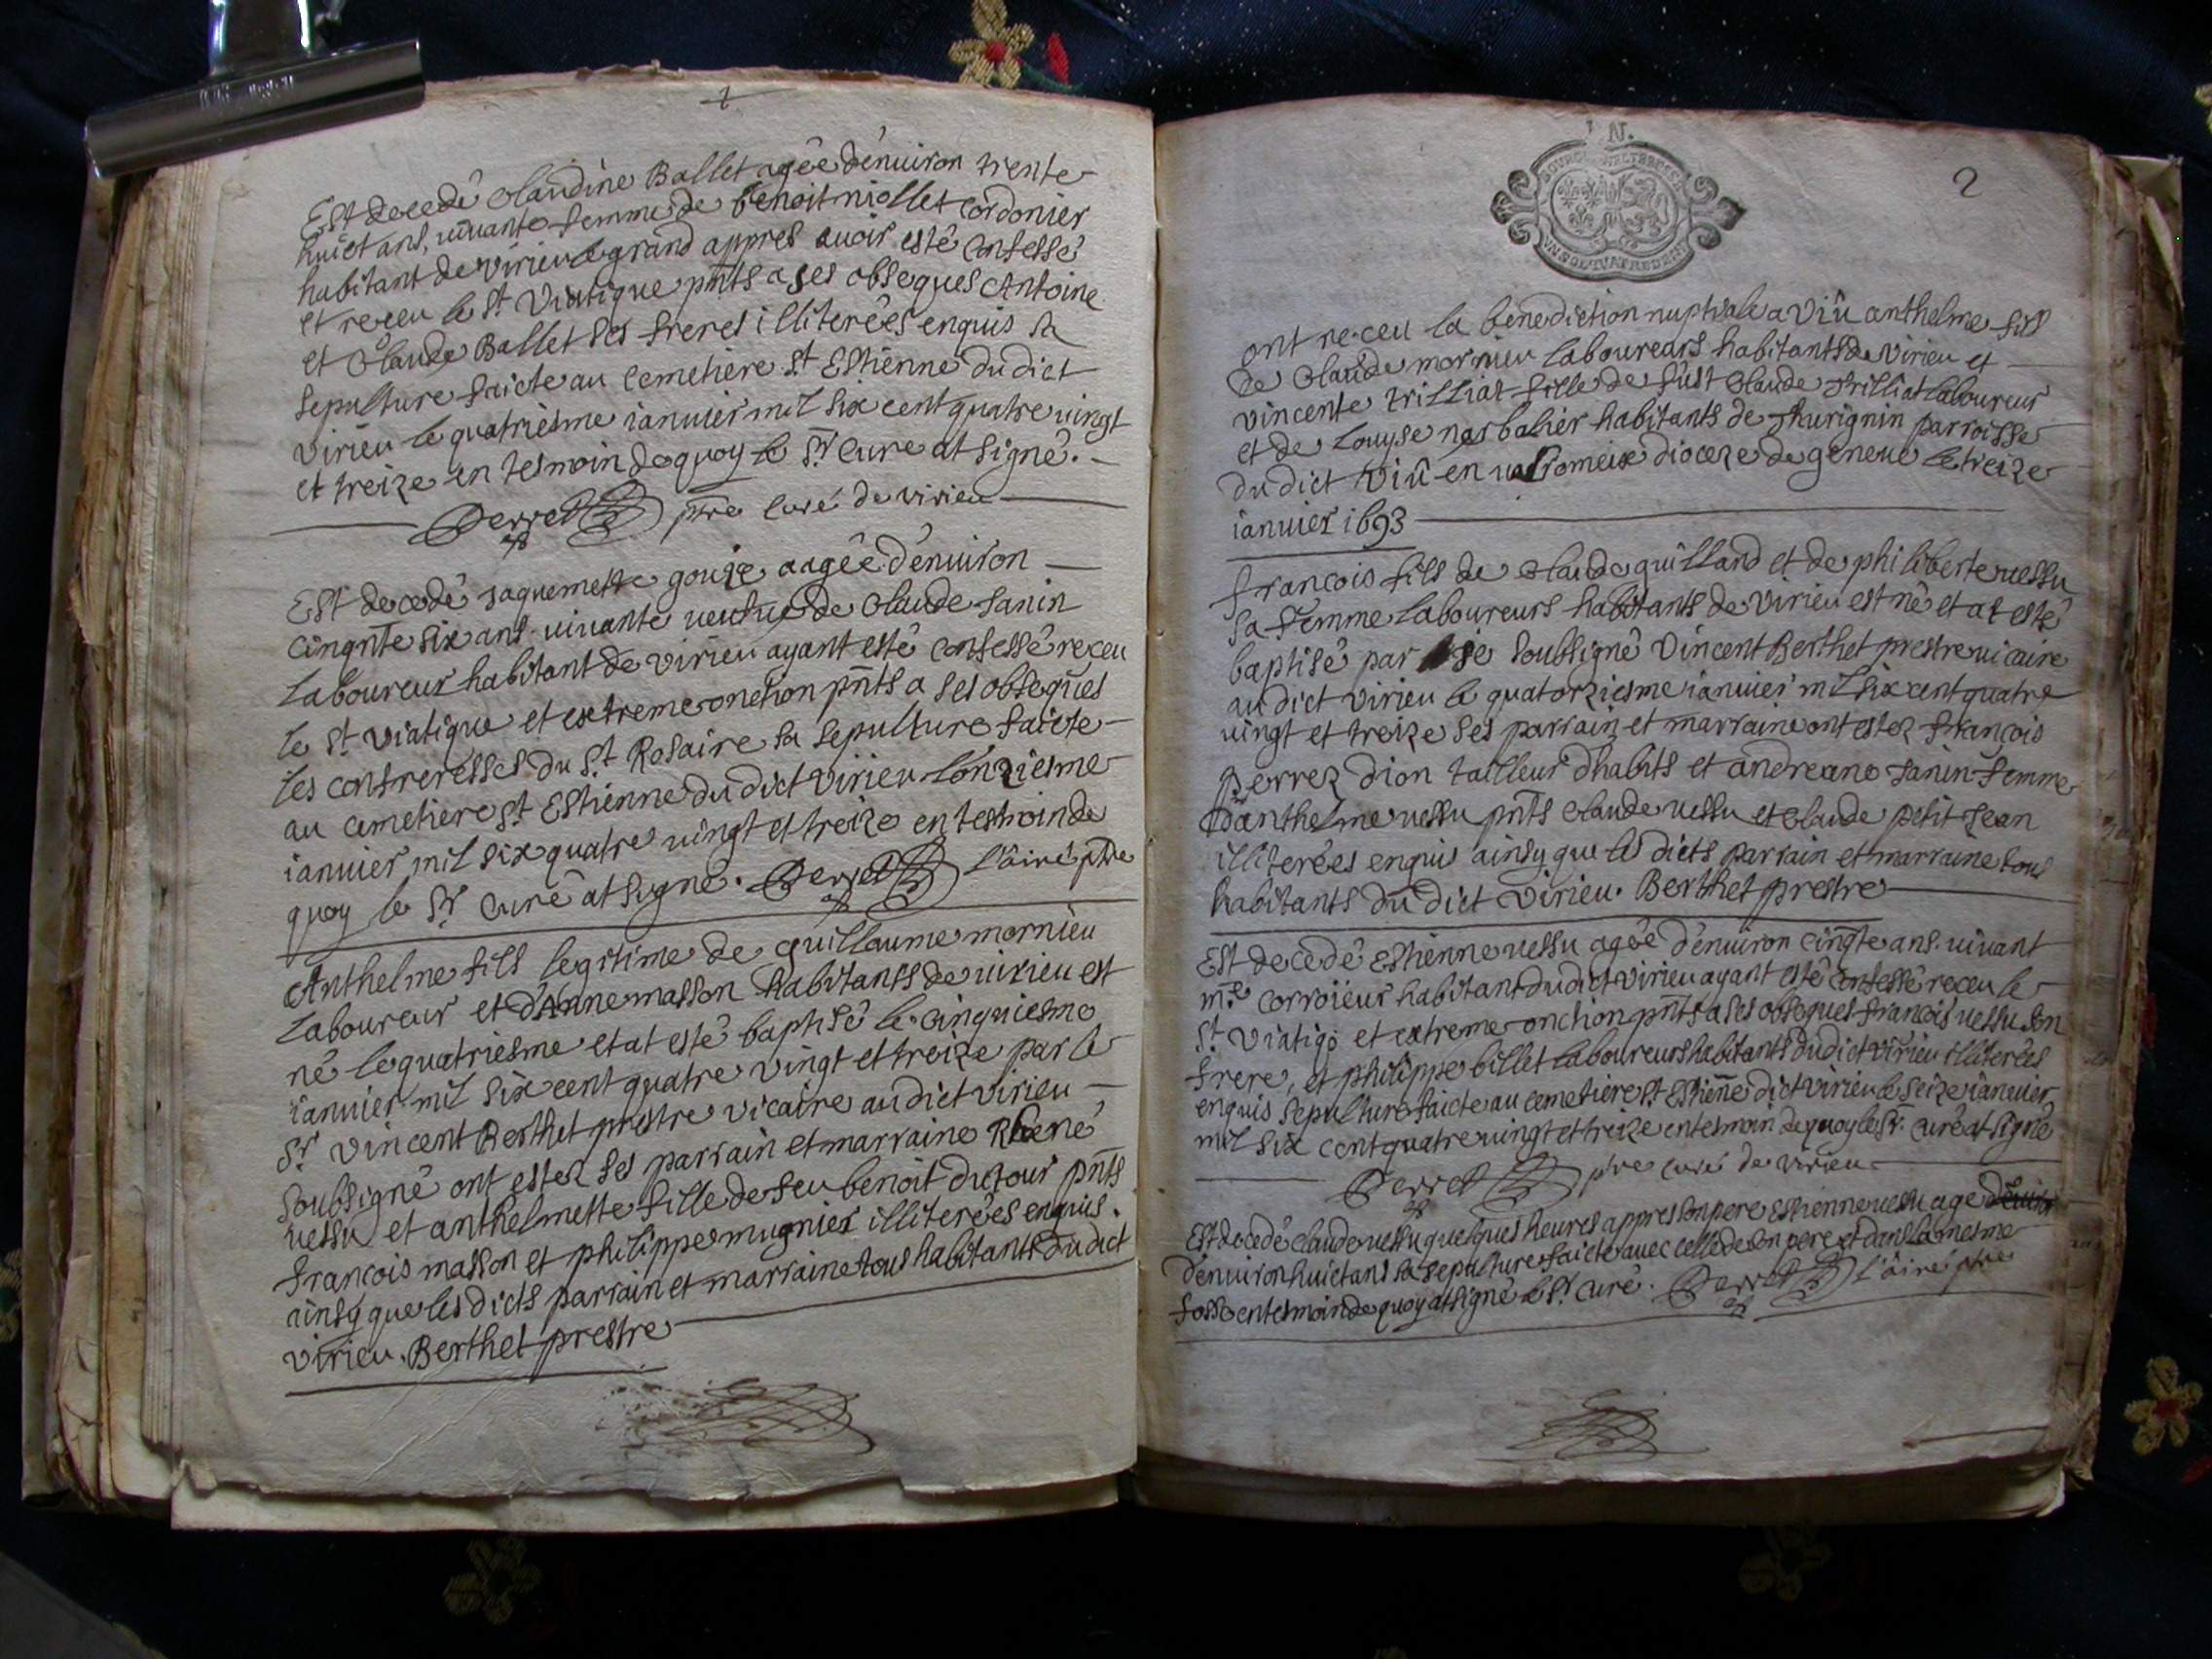 1
Est decedé Claudine Ballet agée d'enuiron trente
huict ans, uiuante femme de benoit niollet cordonier
habitant de virieu le grand appres auoir esté confessé
et receu le St Viatique pñts a ses obseques Antoine
et Claude Ballet ses freres illiterées enquis sa
sepulture faicte au cemetiere St Estienne dudict
virieu le quatriesme ianuier mil six cent quatre uingt
et treize en tesmoin de quoy le Sr Curé at signé.
Perret ptre curé de virieu
Est decedé Jaquemette gouje aagée d'enuiron
cinqñte six ans uiuante ueufue de Claude Janin
Laboureur habitant de virieu ayant esté confessé receu
le St Viatique et extreme onction pñts a ses obseques
les confreresses du St Rosaire sa sepulture faicte
au cemetiere St Estienne du dict virieu l'onziesme
ianuier mil six quatre uingt et treize en tesmoin de
quoy le Sr Curé at signé. Perret ptre
Anthelme fils legitime de guillaume mornieu
Laboureur et d'Anne masson habitants de uirieu est
né le quatriesme et at esté baptisé le cinquiesme
ianuier mil six cent quatre vingt et treize par le
Sr Vincent Berthet prestre vicaire au dict virieu
soubsigné ont estez ses parrain et marraine René
uessu et anthelmette fille de feu benoit dutour pñts
francois masson et philippe mugnier illiterées enquis.
ainsy que les dicts parrain et marraine tous habitants du dict
virieu. Berthet prestre
2
ont receu la benediction nuptiale a Viû anthelme fils
de Claude mornieu laboureurs habitants de virieu et
vincente trilliat fille de fust Claude trilliat laboureur
et de Louyse habitants de parroisse
du dict Viû en ualromeix dioceze de geneue le treize
ianuier 1693
francois fils de Claude guilland et de philiberte uessu
sa femme laboureurs habitants de virieu est né et at esté
baptisé par je soubsigné Vincent Berthet prestre uicaire
au dict virieu le quatorziesme ianuier mil six cent quatre
uingt et treize ses parrain et marraine ont estez francois
perrez dion tailleur d'habits et andreane Janin femme
d'anthelme uessu pñts Claude uessu et Claude petit Jean
illiterées enquis ainsy que les dicts parrain et marraine tous
habitants du dict virieu. Berthet prestre
Est decedé Estienne uessu agée d'enuiron cinqñte ans uiuant
me corroieur habitant du dict virieu ayant esté confessé receu le
St Viatiq et extreme onction pñts a ses obseques francois uessu son
frere, et philippe billet laboureurs habitants du dict virieu illiterées
enquis sepulture faicte au cemetiere St Estienne dict virieu le seize ianuier
mil six cent quatre uingt et treize en tesmoin de quoy le Sr. curé at signé
Perret ptre curé de virieu
Est decedé Claude uessu quelques heures appres son pere Estienne uessu age
d'enuiron huict ans sa sepulture faicte auec celle de son pere et dans la mesme
fosse en tesmoin de quoy at signé le Sr Curé. Perret ptre